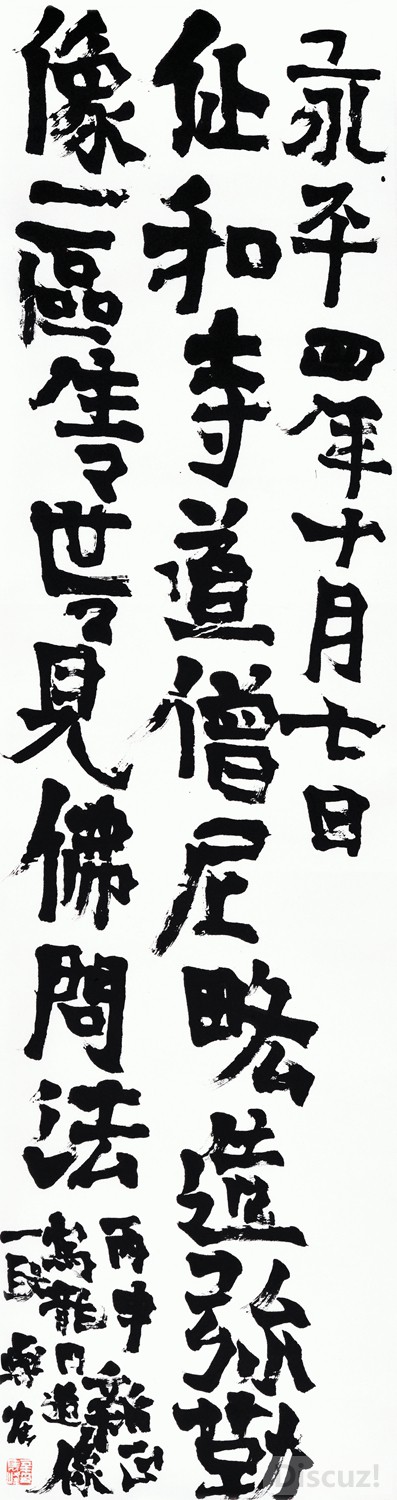 永平四年十月七日
仙和寺道僧尼略造弥勒
像一區生々世々見佛問法
丙申新正
寫龍門造像
一段
Discuz!